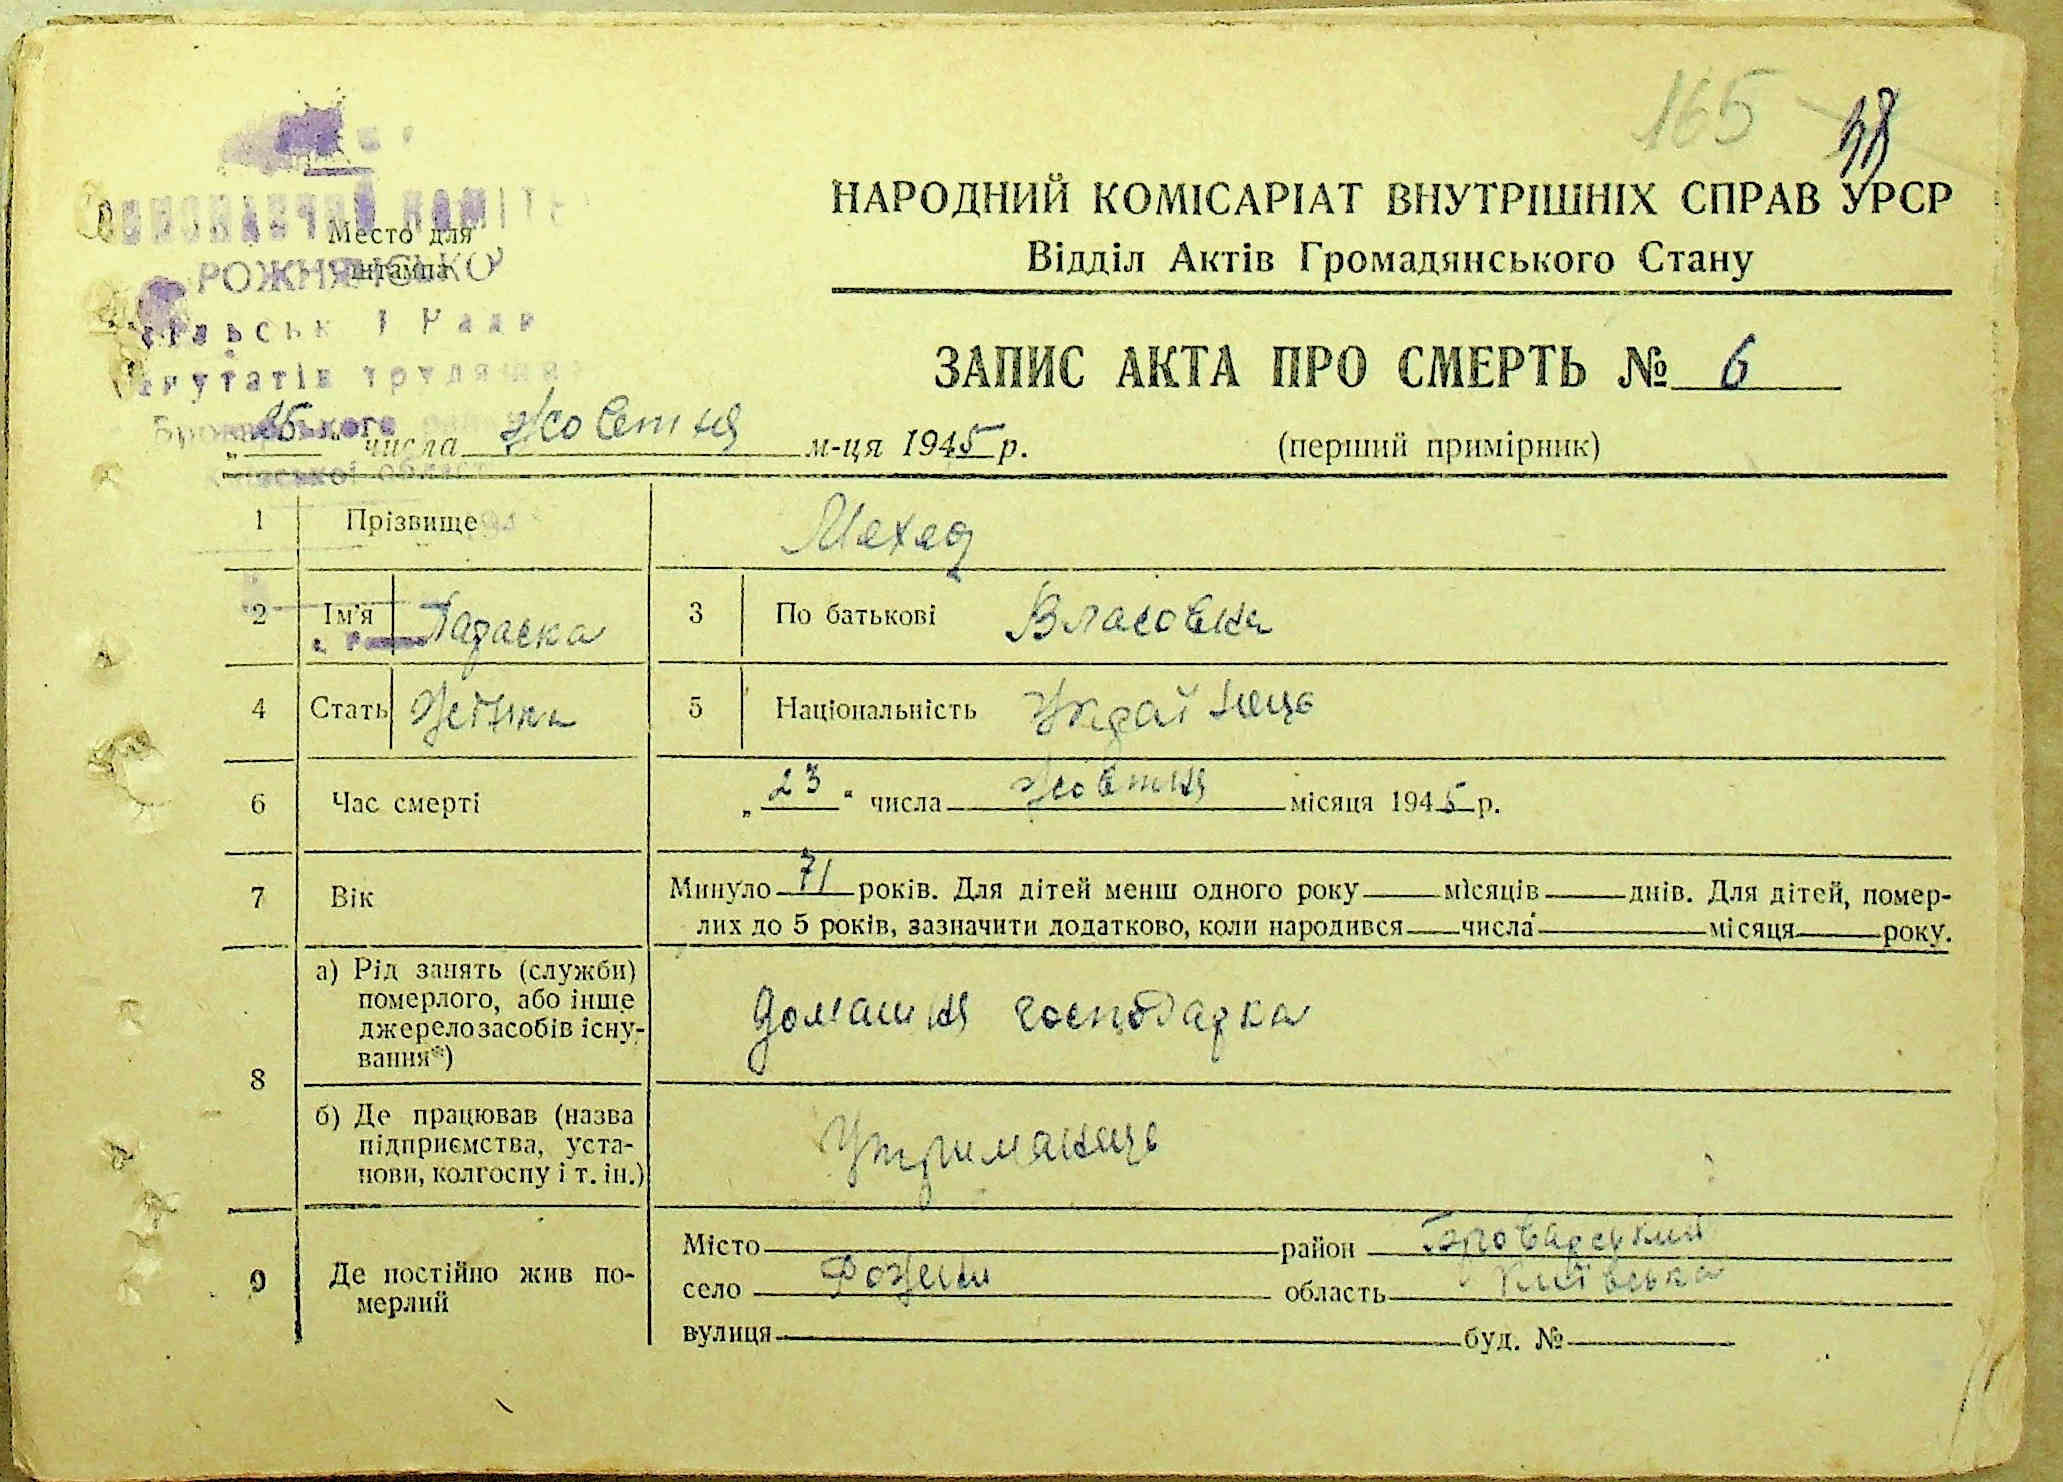 165
38
НАРОДНИЙ КОМІСАРІАТ ВНУТРІШНІХ СПРАВ УРСР
Відділ Актів Громадянського Стану
Место для
штампа
РОЖНЯНСЬКО
ЗАПИС АКТА ПРО СМЕРТЬ № 6
„25“ числа Жовтня м-ця 1945 р.
(перший примірник)
1 Прізвище Мехед
2 Ім'я Параска 3 По батькові Власовна
4 Стать Жіноча 5 Національність Українець
6 Час смерті „23“ числа Жовтня місяця 1945 р.
7 Вік Минуло 71 років. Для дітей менш одного року місяців днів. Для дітей, помер-
лих до 5 років, зазначити додатково, коли народився числа місяця року.
8 а) Рід занять (служби)
померлого, або інше
джерело засобів існу-
вання*)
домашня господарка
б) Де працював (назва
підприємства, уста-
нови, колгоспу і т. ін.)
Утриманець
9 Де постійно жив по-
мерлий
Місто район Броварський
село Рожни область Київська
вулиця буд. №